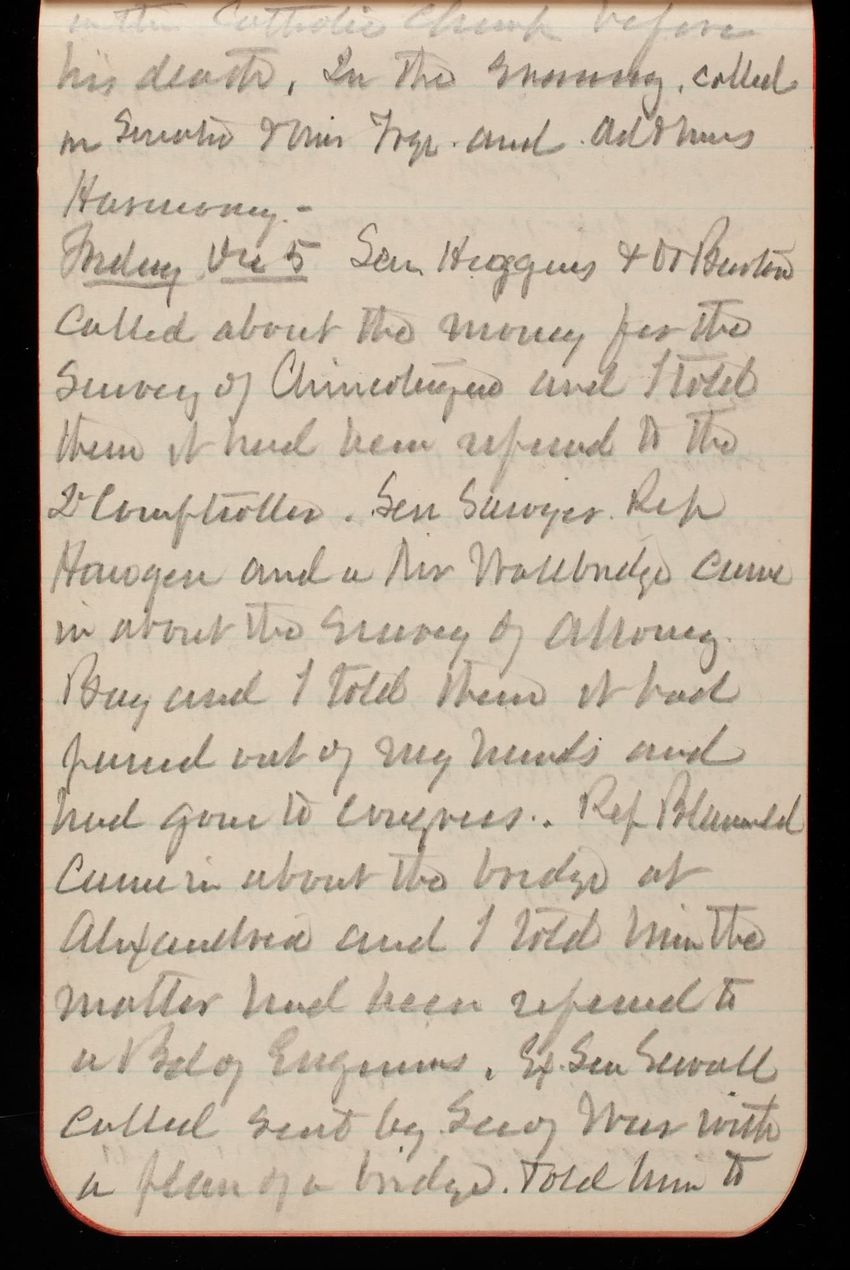 in the Catholic Church before
his death. In the evening, called
on Senator & Mrs and Ad & Mrs
Harmony.-
Friday Dec 5 Sen Higgins & Dr Burton
called about the money for the
Survey of Chincoteague and I told
them it had been referred to the
2d Comptroller. Sen Sawyer. Rep
Haugen and a Mr Wallbridge came
in about the survey of
Bay and I told them it had
passed out of my hands and
had gone to Congress.. Rep Blanchard
came in about the bridge at
Alexandria and I told him the
matter had been referred to
a Bd of Engineers. Ex. Sen Sewall
called sent by Sec of War with
a plan of a bridge. Told him to